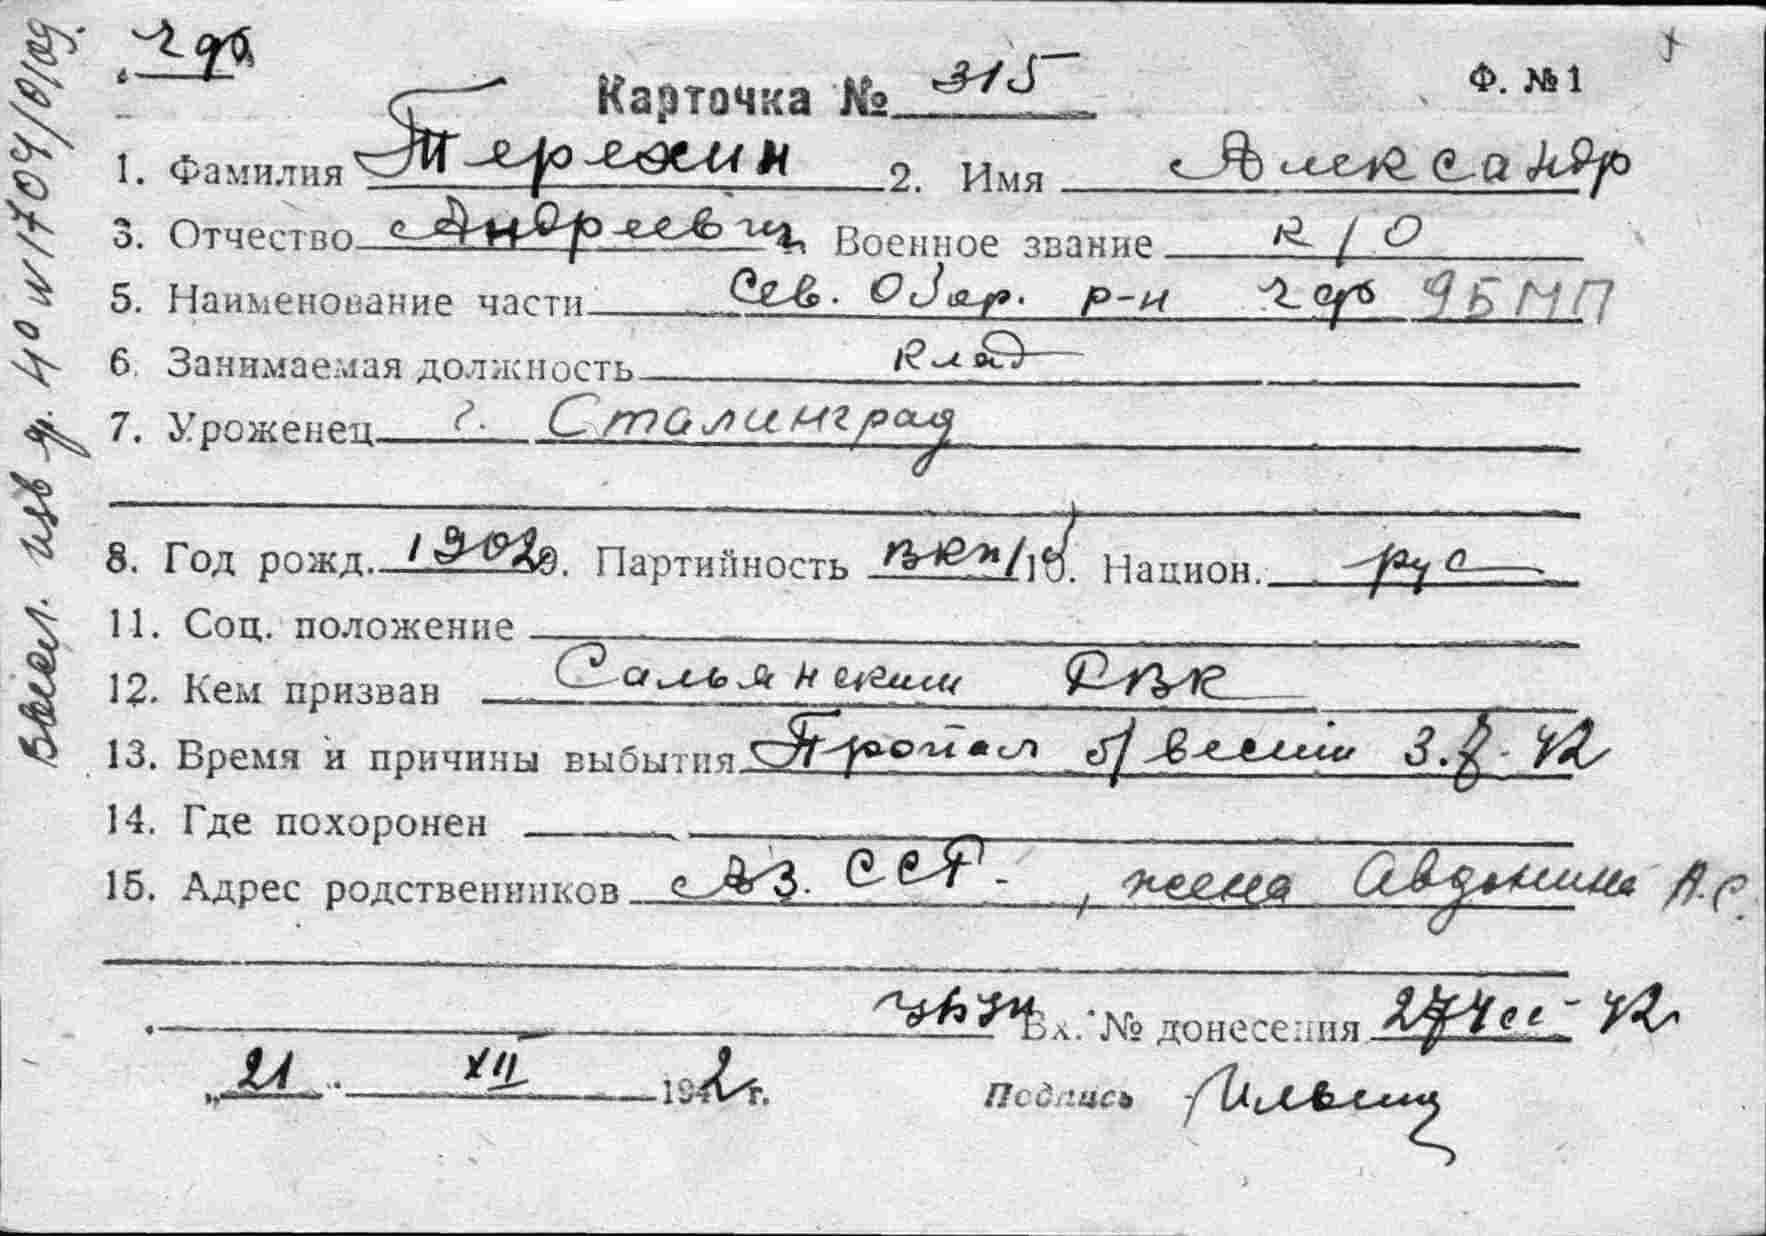 чф
Карточка № 315 Ф. №1
1. Фамилия Терехин 2. Имя Александр
3. Отчество Андреевич Военное звание к/о
5. Наименование части Сев. Обор. р-н чф 9БМП
6. Занимаемая должность клад
7. Уроженец г. Сталинград
8. Год рожд. 1902 9. Партийность вкп/б 10. Национ. рус
11. Соц. положение
12. Кем призван Сальянским РВК
13. Время и причины выбытия Пропал б/вести 3.7.42
14. Где похоронен
15. Адрес родственников Аз. ССР. , жена Авдонина А.С.
Вх. № донесения 274сс 42
„21" XII 1942 г. Подпись
Высл. изв